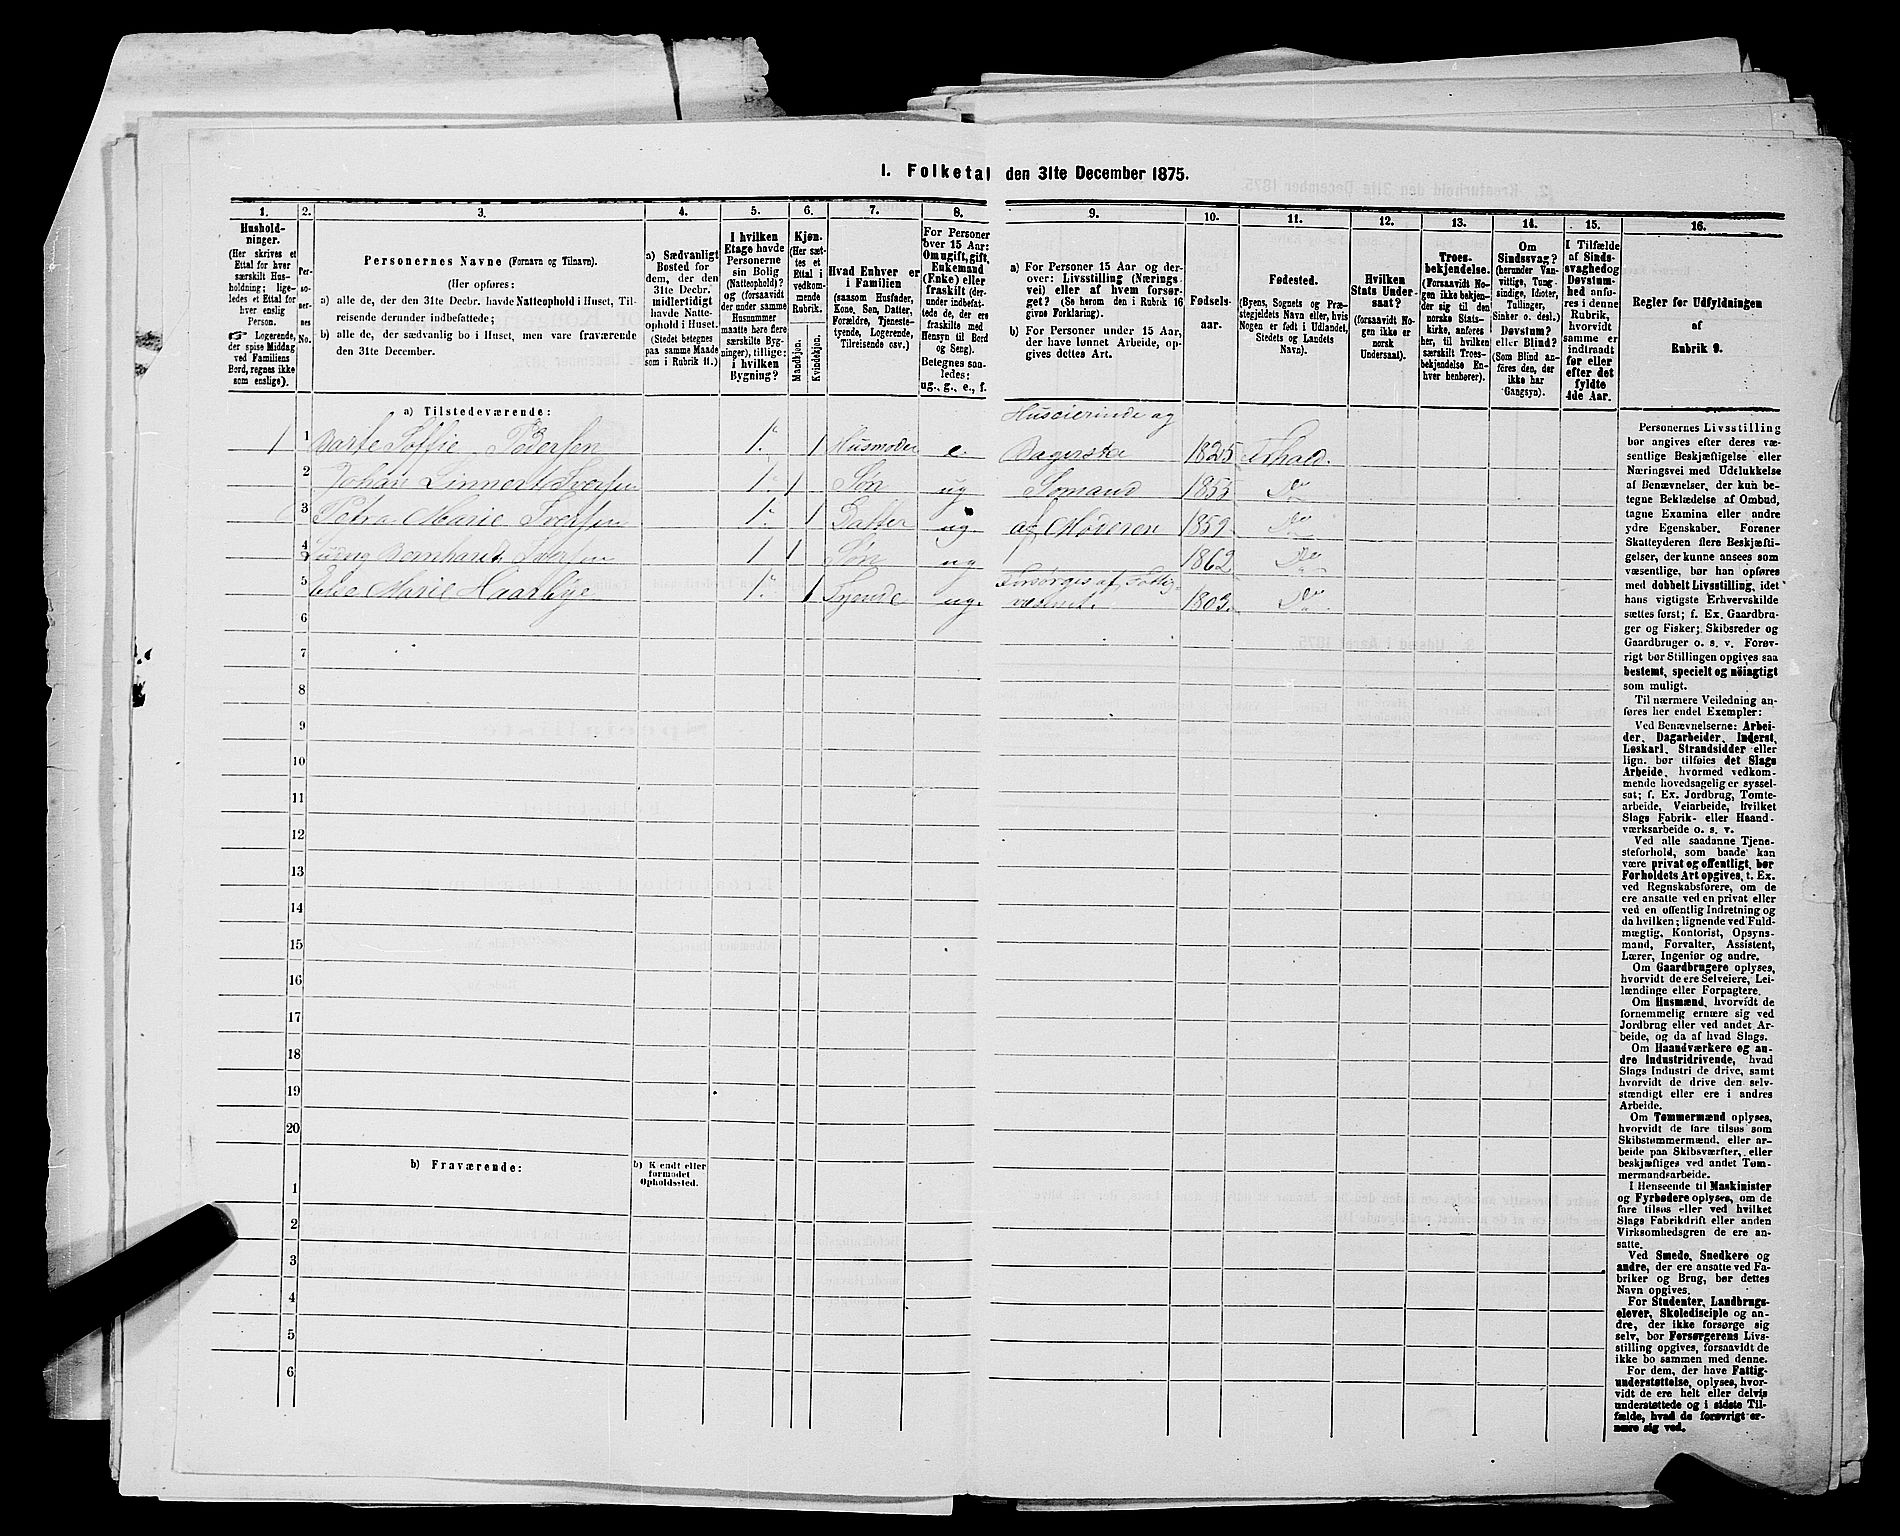 1. Folketal den 31te December 1875.
1. 2. 3. 4. 5. 6. 7. 8. 9. 10. 11. 12. 13. 14. 15. 16.
Hushold-
ninger.
(Her skrives et
Ettal for hver
særskilt Hus-
holdning; lige-
ledes et Ettal for
hver enslig
Person.
Logerende,
der spise Middag
ved Familiens
Bord, regnes ikke
som enslige).
Per-
soner-
nes
No.
Personernes Navne (Fornavn og Tilnavn).
(Her opføres:
a) alle de, der den 31te Decbr. havde Natteophold i Huset, Til-
reisende derunder indbefattede;
b) alle de, der sædvanlig bo i Huset, men vare fraværende
den 31te December.
a) Sædvanligt
Bosted for
dem, der den
31te Decbr.
midlertidigt
havde Natte-
ophold i Huset.
(Stedet betegnes
paa samme Maade
som i Rubrik 11.)
I hvilken
Etage havde
Personerne
sin Bolig
(Natteophold)?
og (forsaavidt
der under samme
Husnummer
maatte høre flere
særskilte Byg-
ninger), tillige:
i hvilken
Bygning?
Kjøn.
(Her sæt-
tes et
Ettal i
vedkom-
mende
Rubrik.
Mandkjøn.
Kvindekjøn.
Hvad Enhver er
i Familien
(saasom Husfader,
Kone, Søn, Datter,
Forældre, Tjeneste-
tyende, Logerende,
Tilreisende osv.)
For Personer
over 15 Aar:
Om ugift, gift,
Enkemand
(Enke) eller
fraskilt (der-
under indbefat-
tede de, der ere
fraskilte med
Hensyn til Bord
og Seng).
Betegnes saa-
ledes:
ug., g., e., f.
a) For Personer 15 Aar og der-
over: Livsstilling (Nærings-
vei) eller af hvem forsør-
get? (Se herom den i Rubrik 16
givne Forklaring).
b) For Personer under 15 Aar,
der have lønnet Arbeide, op-
gives dettes Art.
Fødsels-
aar.
Fødested.
(Byens, Sognets og Præ-
stegjeldets Navn eller, hvis
Nogen er født i Udlandet,
Stedets og Landets
Navn).
Hvilken
Stats Under-
saat?
(forsaavidt No-
gen ikke er
norsk
Undersaat).
Troes-
bekjendelse.
(Forsaavidt No-
gen ikke bekjen-
der sig til den
norske Stats-
kirke, anføres
her, til hvilken
særskilt Troes-
bekjendelse En-
hver henhører).
Om
Sindssvag?
(herunder Van-
vittige, Tung-
sindige, Idioter,
Tullinger,
Sinker o. desl.)
Døvstum?
eller Blind?
(Som Blind an-
føres den, der
ikke har
Gangsyn).
I Tilfælde
af Sinds-
svaghed og
Døvstum-
hed anfø-
res i denne
Rubrik,
hvorvidt
samme er
indtraadt
før eller
efter det
fyldte
4de Aar.
Regler for Udfyldningen
af
Rubrik 9.
a) Tilstedeværende:
Huseierinde og
1 1 Barte Soffie Pedersen 1. 1 Husmoder e. Bagerske 1825 Frhald.
2 Johan Linnert Iversen 1. 1 Søn ug Sømand 1855 Do
3 Petra Marie Iversen 1. 1 Datter ug af Moderen 1859 Do
4 Ludvig Bernhardt Iversen 1 1 Søn ug 1862 Do
Forsørges af Fattig-
5 Else Marie Haarbye 1. 1 Tyende ug. væsenet. 1803. Do
6
7
8
9
10
11
12
13
14
15
16
17
18
19
20
b) Fraværende:
b) Kendt eller
formodet
Opholdssted.
1
2
3
4
5
6
Personernes Livsstilling
bør angives efter deres væ-
sentlige Beskjæftigelse eller
Næringsvei med Udelukkelse
af Benævnelser, der kun be-
tegne Beklædelse af Ombud,
tagne Examina eller andre
ydre Egenskaber. Forener
Skatteyderen flere Beskjæfti-
gelser, der kunne ansees som
væsentlige, bør han opføres
med dobbelt Livsstilling, idet
hans vigtigste Erhvervskilde
sættes først; f. Ex. Gaardbru-
ger og Fisker; Skibsreder og
Gaardbruger o. s. v. Forøv-
rigt bør Stillingen opgives saa
bestemt, specielt og nøiagtigt
som muligt.
Til nærmere Veiledning an-
føres her endel Exempler:
Ved Benævnelserne: Arbei-
der, Dagarbeider, Inderst,
Løskarl, Strandsidder eller
lign. bør tilføies det Slags
Arbeide, hvormed vedkom-
mende hovedsagelig er syssel-
sat; f. Ex. Jordbrug, Tomte-
arbeide, Veiarbeide, hvilket
Slags Fabrik- eller Haand-
værksarbeide o. s. v.
Ved alle saadanne Tjene-
steforhold, som baade kan
være privat og offentligt, bør
Forholdets Art opgives, t. Ex.
ved Regnskabsførere, om de
ere ansatte ved en privat eller
ved en offentlig Indretning og
da hvilken; lignende ved Fuld-
mægtig, Kontorist, Opsyns-
mand, Forvalter, Assistent,
Lærer, Ingeniør og andre.
Om Gaardbrugere oplyses,
hvorvidt de ere Selveiere, Lei-
lændinge eller Forpagtere.
Om Husmænd, hvorvidt de
fornemmelig ernære sig ved
Jordbrug eller ved andet Ar-
beide, og da af hvad Slags.
Om Haandværkere og an-
dre Industridrivende, hvad
Slags Industri de drive, samt
hvorvidt de drive den selv-
stændigt eller ere i andres
Arbeide.
Om Tømmermænd oplyses,
hvorvidt de fare tilsøs som
Skibstømmermænd, eller ar-
beide paa Skibsværfter, eller
beskjæftiges ved andet Tøm-
mermandsarbeide.
I Henseende til Maskinister
og Fyrbødere oplyses, om de
fare tilsøs eller ved hvilket
Slags Fabrikdrift eller anden
Virksomhedsgren de ere an-
satte.
Ved Smede, Snedkere og
andre, der ere ansatte ved Fa-
briker og Brug, bør dettes
Navn opgives.
For Studenter, Landbrugs-
elever, Skoledisciple og an-
dre, der ikke forsørge sig
selv, bør Forsørgerens Livs-
stilling opgives, forsaavidt de
ikke bo sammen med denne.
For dem, der have Fattig-
understøttelse, oplyses, hvor-
vidt de ere helt eller delvis
understøttede og i sidste Til-
fælde, hvad de forøvrigt er-
nære sig ved.